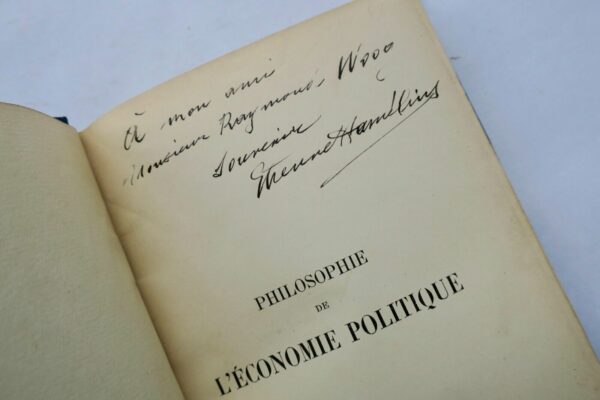 à mon ami
Monsieur Raymond Woog
Souvenir
Etienne Hamélius
PHILOSOPHIE
DE
L'ÉCONOMIE POLITIQUE